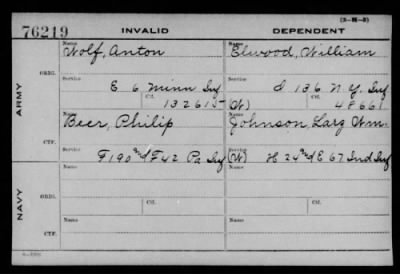 (3-M-3)
76219 INVALID DEPENDENT
Name Name
Wolf, Anton Elwood, William
ORIG.
Service Service
E 6, Minn Inf I 136 N.Y. Inf
Ctf. Ctf.
132615 (W) 48661
ARMY
Name Name
Beer, Philip Johnson, Larz Wm.
CTF.
Service Service
F 190 and F 42 Pa Inf (W) H 24 and E 67 Ind Inf
Name Name
ORIG.
Service Service
Ctf. Ctf.
NAVY
Name Name
CTF.
Service Service